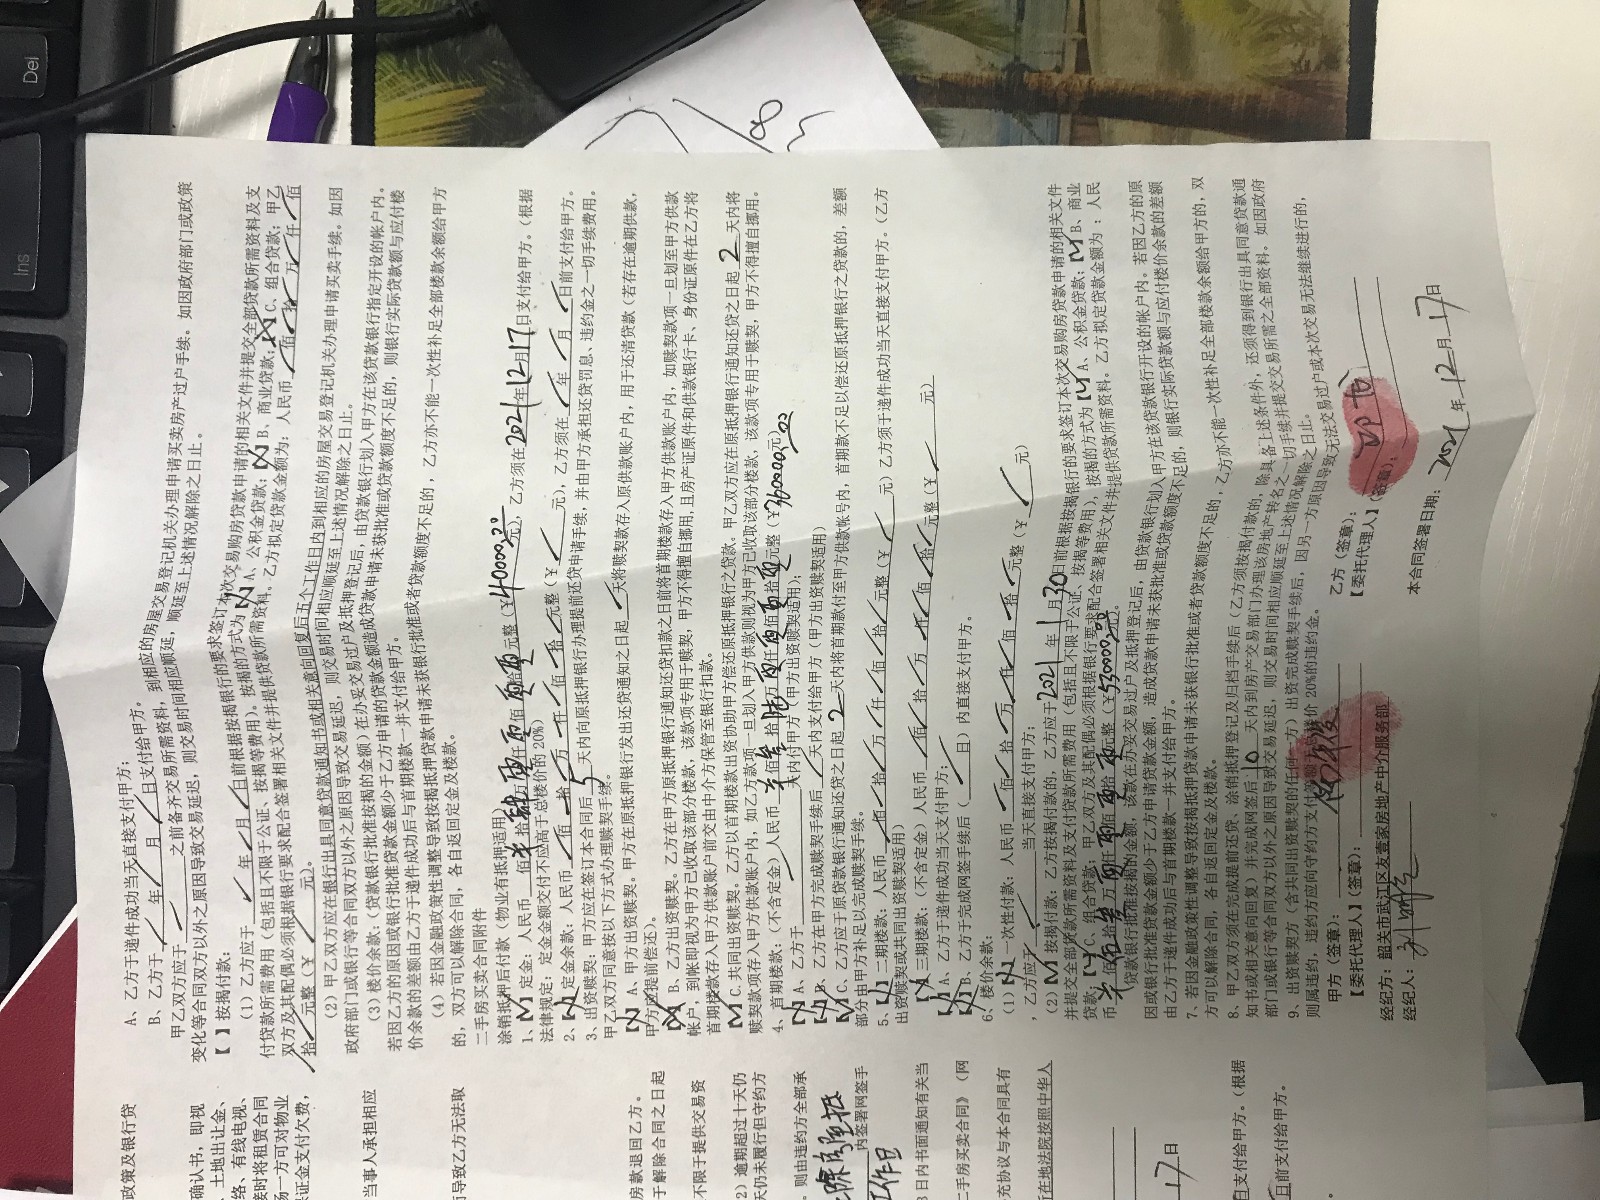 A、乙方于递件成功当天直接支付甲方；
B、乙方于 年 月 日支付给甲方。
甲乙双方应于 之前备齐交易所需资料，到相应的房屋交易登记机关办理申请买卖房产过户手续。如因政府部门或政策
变化等合同双方以外之原因导致交易延迟，则交易时间相应顺延，顺延至上述情况解除之日止。
【 】按揭付款：
（1）乙方应于 年 月 日前根据按揭银行的要求签订本次交易购房贷款申请的相关文件并提交全部贷款所需资料及支
付贷款所需费用（包括且不限于公证、按揭等费用），按揭的方式为【 】A、公积金贷款；【 】B、商业贷款；【 】C、组合贷款；甲乙
双方及其配偶必须根据银行要求配合签署相关文件并提供贷款所需资料。乙方拟定贷款金额为：人民币 佰 拾 万 仟 佰
拾 元整（￥ 元）。
（2）甲乙双方应在银行出具同意贷款通知书或相关意向回复后五个工作日内到相应的房屋交易登记机关办理申请买卖手续。如因
政府部门或银行等合同双方以外之原因导致交易延迟，则交易时间相应顺延至上述情况解除之日止。
（3）楼价余款：（贷款银行批准按揭的金额）在办妥交易过户及抵押登记后，由贷款银行划入甲方在该贷款银行指定开设的帐户内。
若因乙方的原因或银行批准贷款金额少于乙方申请的贷款金额造成贷款申请未获批准或贷款额度不足的，则银行实际贷款额与应付楼
价余款的差额由乙方于递件成功后与首期楼款一并支付给甲方。
（4）若因金融政策性调整导致按揭抵押贷款申请未获银行批准或者贷款额度不足的，乙方亦不能一次性补足全部楼款余额给甲方
的，双方可以解除合同，各自返回定金及楼款。
二手房买卖合同附件
涂销抵押后付款（物业有抵押适用）
1、【√】定金：人民币 佰 拾 万 仟 佰 拾 元整（￥40000.00元），乙方须在2021年12月17日支付给甲方。（根据
法律规定：定金金额交付不应高于总楼价的20%）
2、【 】定金余款：人民币 佰 拾 万 仟 佰 拾 元整（￥ 元），乙方须在 年 月 日前支付给甲方。
3、出资赎契：甲方应在签订本合同后 5 天内向原抵押银行办理提前还贷申请手续，并由甲方承担还贷罚息、违约金之一切手续费用。
甲乙双方同意按以下方式办理赎契手续。
【 】A、甲方出资赎契。甲方在原抵押银行发出还贷通知之日起 天将赎契款存入原供款账户内，用于还清贷款（若存在逾期供款，
甲方应提前偿还）。
【 】B、乙方出资赎契。乙方在甲方原抵押银行通知还贷扣款之日前将首期楼款存入甲方供款账户内，如赎契款项一旦划至甲方供款
帐户，到帐即视为甲方已收取该部分楼款，该款项专用于赎契，甲方不得擅自挪用，且房产证原件和供款银行卡、身份证原件在乙方将
首期楼款存入甲方供款账户前交由中介方保管至银行扣款。
【√】C.共同出资赎契。乙方以首期楼款出资协助甲方偿还原抵押银行之贷款。甲乙双方应在原抵押银行通知还贷之日起 2 天内将
赎契款项存入甲方供款帐户内，如乙方款项一旦划入甲方供款则视为甲方已收取该部分楼款，该款项专用于赎契，甲方不得擅自挪用。
4、首期楼款：（不含定金）人民币 佰 拾 万 仟 佰 拾 元整（￥360000.00元）
【 】A、乙方于 天内付甲方（甲方出资赎契适用）；
【 】B、乙方在甲方完成赎契手续后 天内支付给甲方（甲方出资赎契适用）
【√】C、乙方应于原贷款银行通知还贷之日起 2 天内将首期款付至甲方供款帐号内，首期款不足以偿还原抵押银行之贷款的，差额
部分由甲方补足以完成赎契手续。
5、【 】二期楼款：人民币 佰 拾 万 仟 佰 拾 元整（￥ 元）乙方须于递件成功当天直接支付甲方。（乙方
出资赎契或共同出资赎契适用）
【 】三期楼款：（不含定金）人民币 佰 拾 万 仟 佰 拾 元整（￥ 元）
【 】A、乙方于递件成功当天支付甲方；
【 】B、乙方于完成网签手续后（ 日）内直接支付甲方。
6、楼价余款：
（1）【 】一次性付款：人民币 佰 拾 万 仟 佰 拾 元整（￥ 元）
，乙方应于 当天直接支付甲方；
（2）【√】按揭付款：乙方按揭付款的，乙方应于2021年1月30日前根据按揭银行的要求签订本次交易购房贷款申请的相关文件
并提交全部贷款所需资料及支付贷款所需费用（包括且不限于公证、按揭等费用），按揭的方式为【√】A、公积金贷款；【√】B、商业
贷款；【√】C、组合贷款；甲乙双方及其配偶必须根据银行要求配合签署相关文件并提供贷款所需资料。乙方拟定贷款金额为：人民
币 佰 拾 万 仟 佰 拾 元整（￥530000.00元）。
（贷款银行批准按揭的金额，该款在办妥交易过户及抵押登记后，由贷款银行划入甲方在该贷款银行开设的帐户内。若因乙方的原
因或银行批准贷款金额少于乙方申请贷款金额，造成贷款申请未获批准或贷款额度不足的，则银行实际贷款额与应付楼价余款的差额
由乙方于递件成功后与首期楼款一并支付给甲方。
7、若因金融政策性调整导致按揭抵押贷款申请未获银行批准或者贷款额度不足的，乙方亦不能一次性补足全部楼款余额给甲方的，双
方可以解除合同，各自返回定金及楼款。
8、甲乙双方须在完成提前还贷、涂销抵押登记及归档手续后（乙方须按揭付款的，除具备上述条件外，还须得到银行出具同意贷款通
知书或相关意向回复）并完成网签后 10 天内到房产交易部门办理该房地产转名之一切手续并提交交易所需之全部资料。如因政府
部门或银行等合同双方以外之原因导致交易延迟，则交易时间相应顺延至上述情况解除之日止。
9、出资赎契方（含共同出资赎契的任何一方）出资完成赎契手续后，因另一方原因导致无法交易过户或本次交易无法继续进行的，
则属违约，违约方应向守约方支付 楼价 20%的违约金。
甲方（签章）：
乙方（签章）：
【委托代理人】（签章）：
【委托代理人】（签章）：
经纪方：韶关市武江区友壹家房地产中介服务部
经纪人：
本合同签署日期：2021年12月17日
政策及银行贷
确认书，即视
、土地出让金、
络、有线电视、
接时将租赁合同
场一方可对物业
证金支付欠费，
当事人承担相应
而导致乙方无法取
房款退回乙方。
于解除合同之日起
不限于提供交易资
2）逾期超过十天仍
天仍未履行但守约方
，则由违约方全部承
内签署网签手
工作日
3日内书面通知有关当
二手房买卖合同》（网
充协议与本合同具有
在地法院按照中华人
17日
日支付给甲方。（根据
日前支付给甲方。
Del
Ins